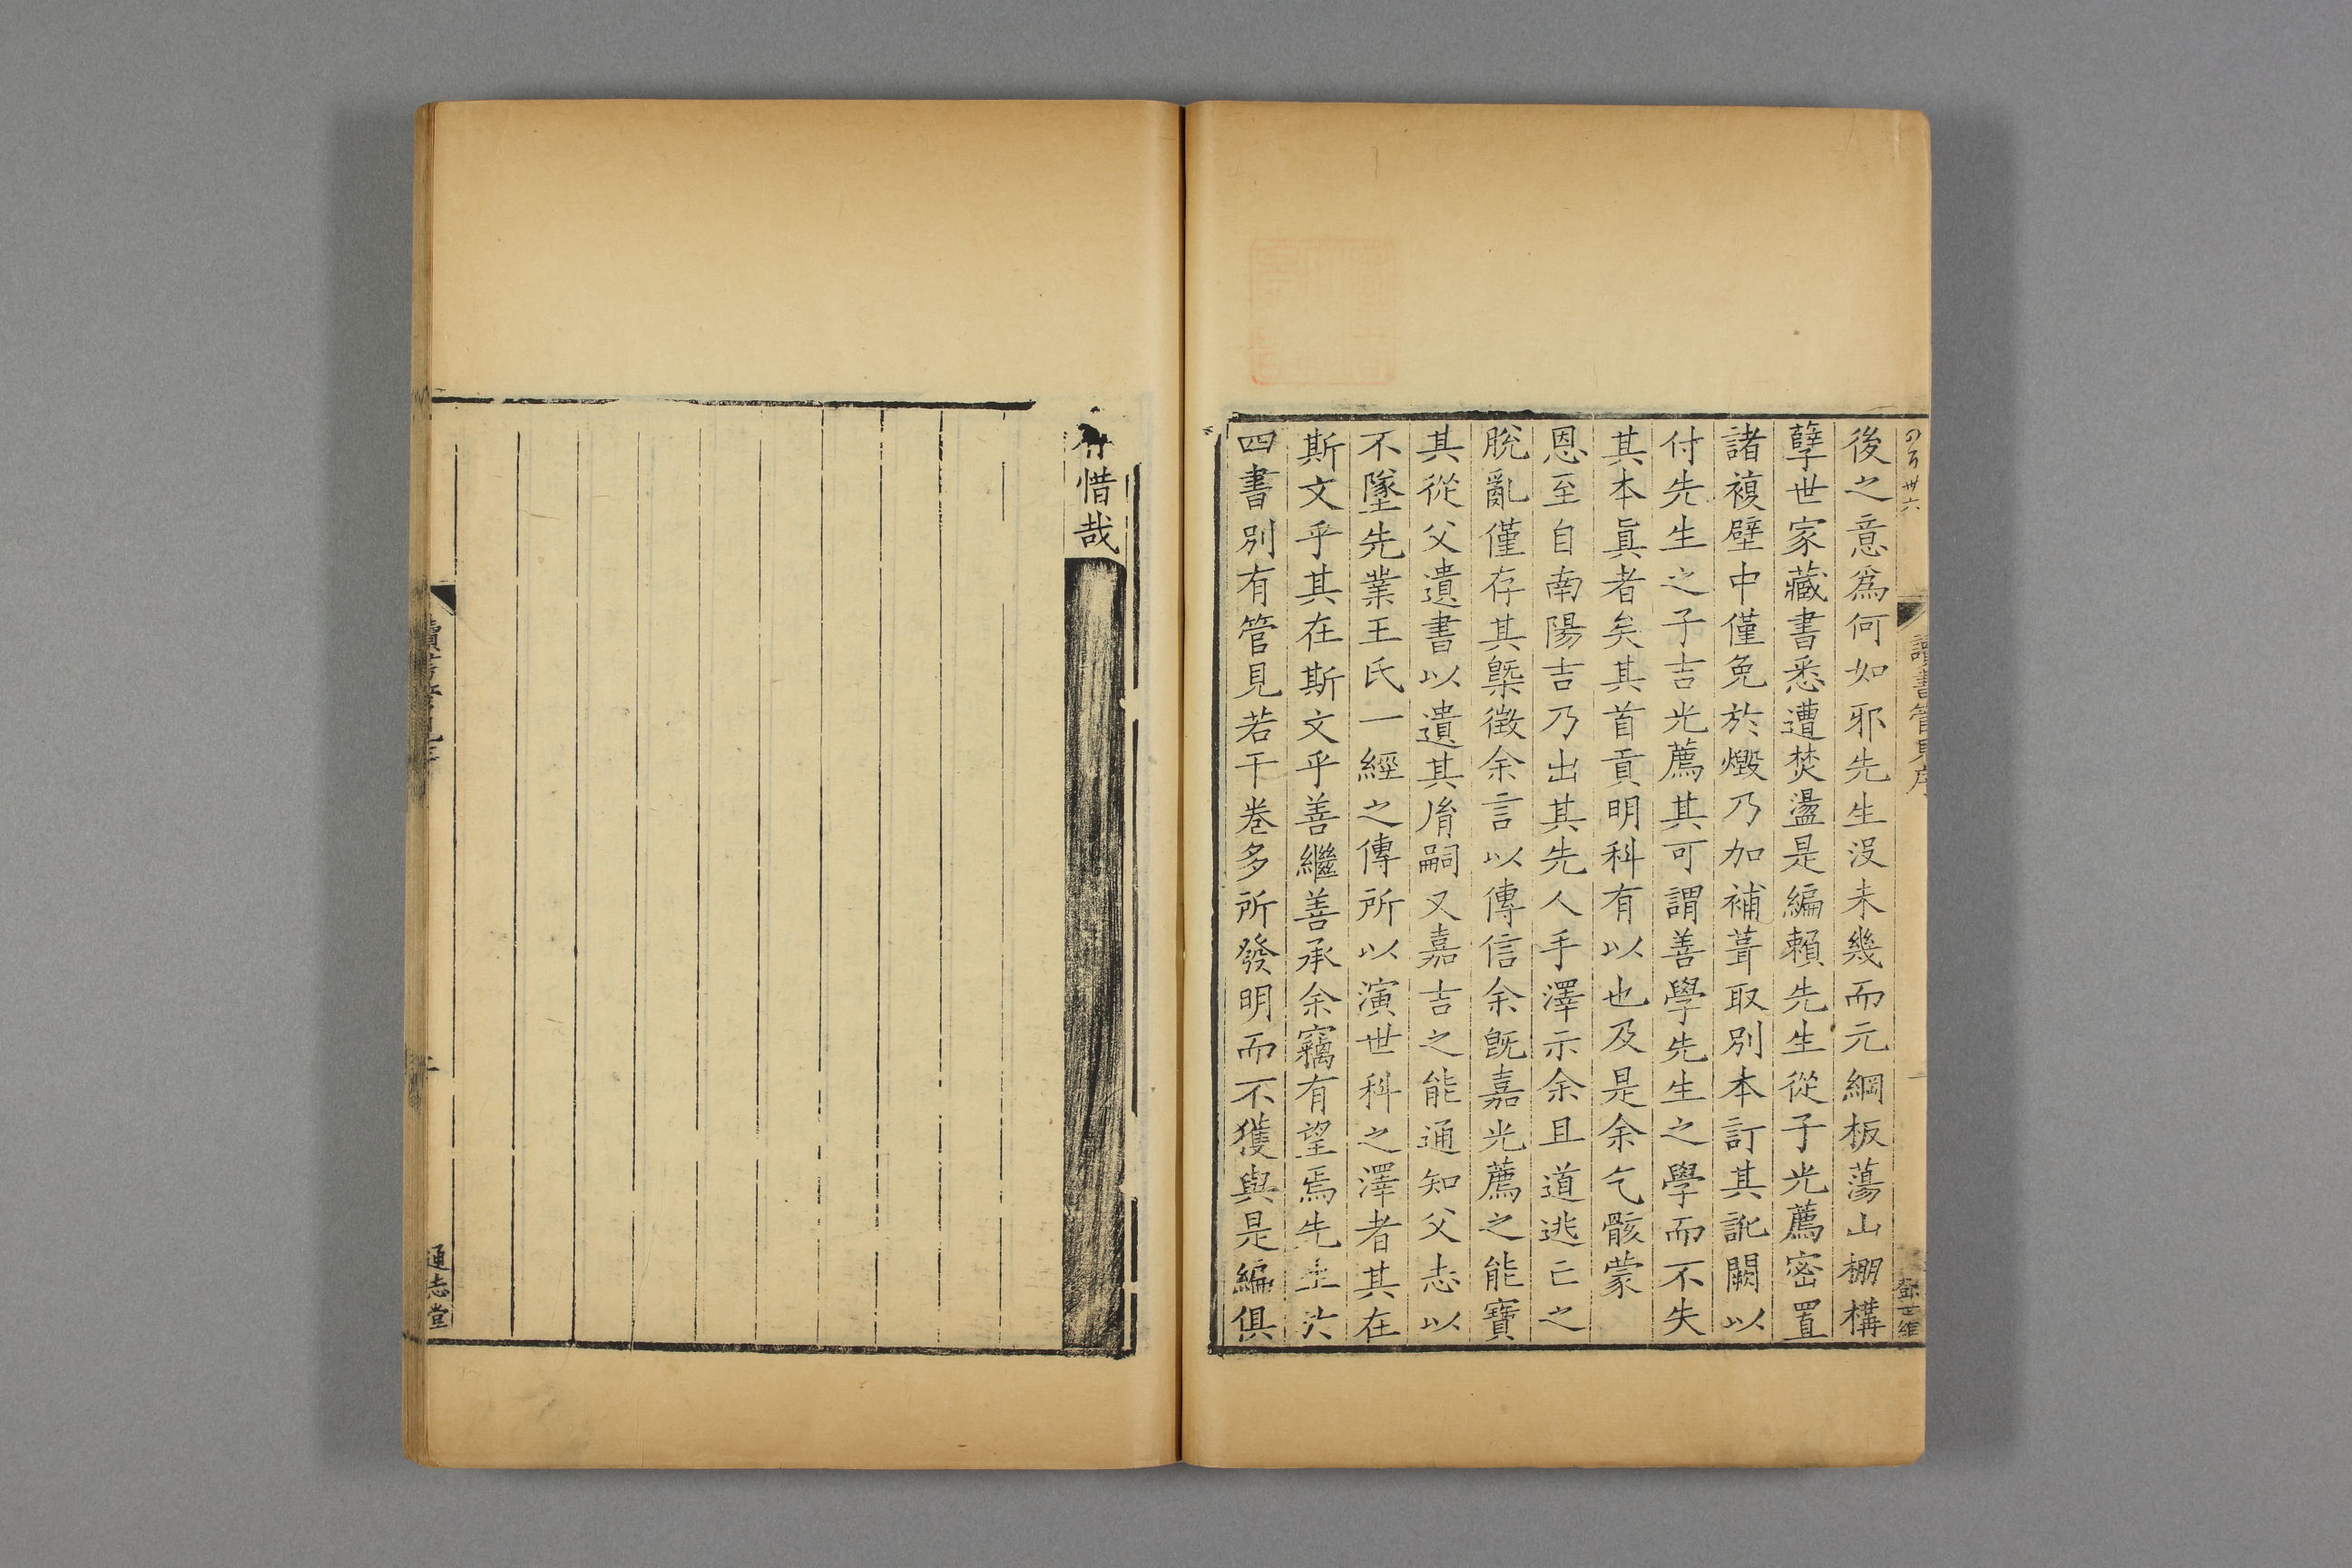 後之意爲何如邪先生沒未幾而元綱板蕩山棚構
孽世家藏書悉遭焚盪是編賴先生從子光薦密置
諸複壁中僅免於燬乃加補葺取別本訂其訛闕以
付先生之子吉光薦其可謂善學先生之學而不失
其本眞者矣其首貢明科有以也及是余乞骸蒙
恩至自南陽吉乃出其先人手澤示余且道逃亡之
脫亂僅存其槩徵余言以傳信余旣嘉光薦之能寶
其從父遺書以遺其胤嗣又嘉吉之能通知父志以
不墜先業王氏一經之傳所以演世科之澤者其在
斯文乎其在斯文乎善繼善承余竊有望焉先生於
四書別有管見若干卷多所發明而不獲與是編俱
惜哉
讀書管見序
通志堂